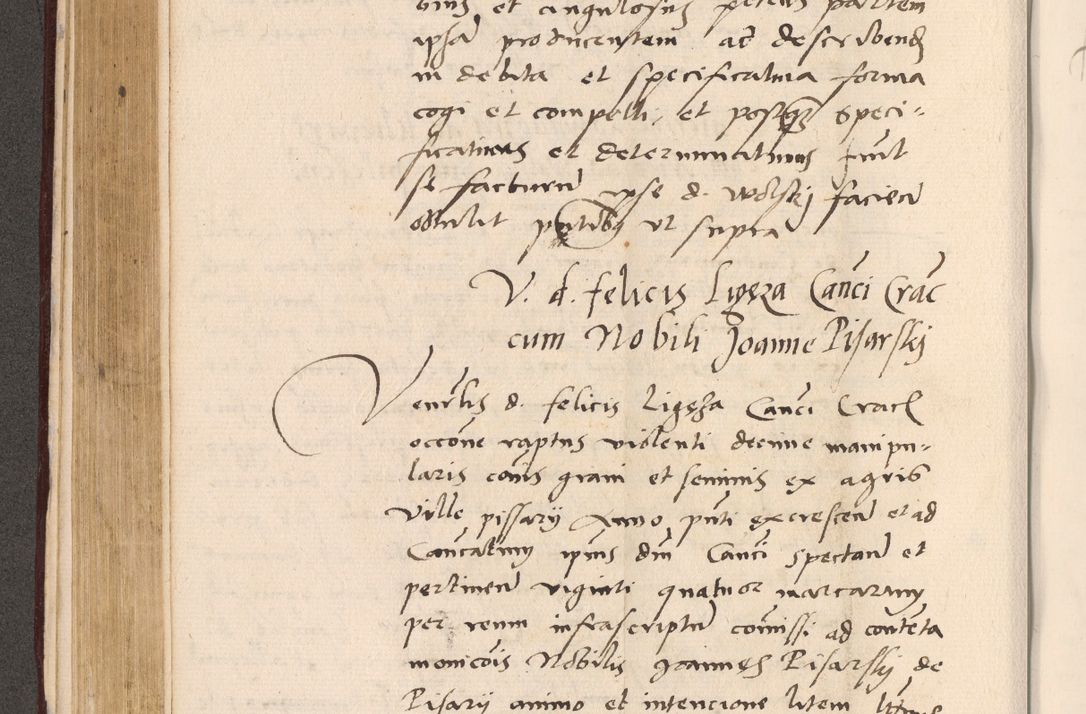 et angulosus petens partem
ipsam producentem ad describend
in debita et specificatiua forma
cogi et compelli, et postq speci-
ficatiuus et determinatiuus fuit
se facturum ipse d. Wolskj facien
obtulit pntibus vt supra
V. d. felicis Ligęza Canci Crac
cum Nobili Joanne Pisarskj
Venrlis d. felicis Ligęza Canci Crac
occone raptus violenti decime manipu-
laris conis grani et seminis ex agris
Ville pissarij Anno pnti excrescen et ad
Cancatum ipius dni Canci spectan et
pertinen viginti quatuor marcarum
per reum infrascriptum comissi ad contenta
monicois Nobilis Joannes Pisarskj de
Pisarij animo et intencione litem